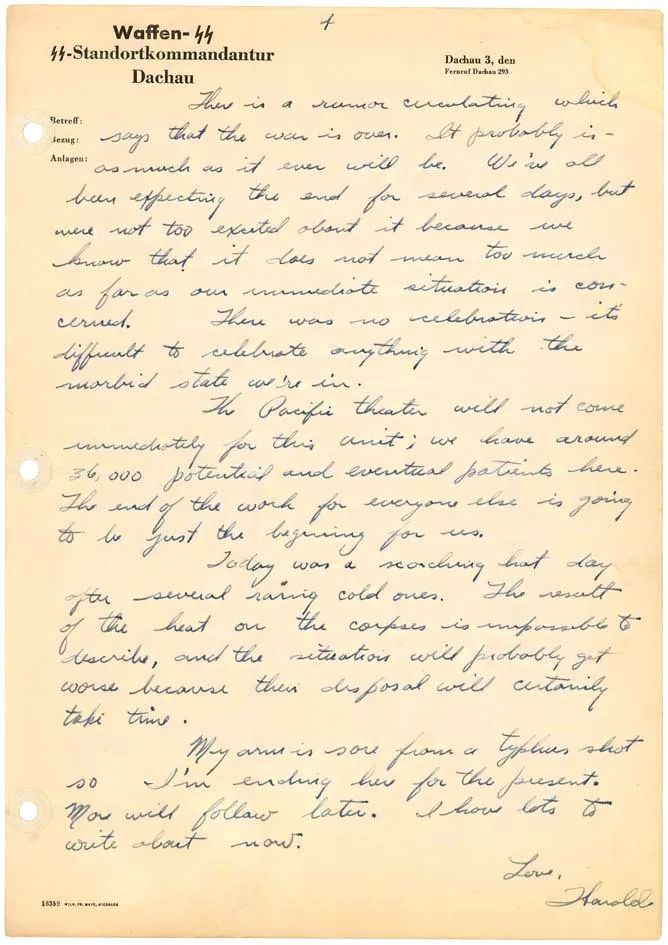 4
Waffen-SS
SS-Standortkommandantur
Dachau
Dachau 3, den
Fernruf Dachau 293
Betreff:
Bezug:
Anlagen:
There is a rumor circulating which
says that the war is over. It probably is -
as much as it ever will be. We've all
been expecting the end for several days, but
were not too excited about it because we
know that it does not mean too much
as far as our immediate situation is con-
cerned. There was no celebration - it's
difficult to celebrate anything with the
morbid state we're in.
The Pacific theater will not come
immediately for this unit; we have around
36,000 potential and eventual patients here.
The end of the work for everyone else is going
to be just the beginning for us.
Today was a scorching hot day
after several rainy cold ones. The result
of the heat on the corpses is impossible to
describe, and the situation will probably get
worse because their disposal will certainly
take time.
My arm is sore from a typhus shot
so I'm ending here for the present.
More will follow later. I have lots to
write about now.
Love,
Harold
16359 WILH. FR. MAYR, MIESBACH